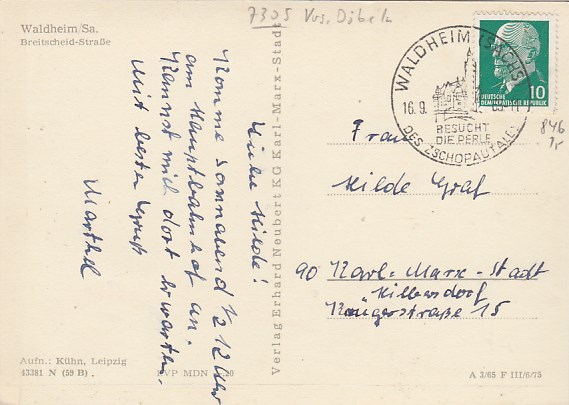 7305 Krs. Döbeln
Waldheim/Sa.
Breitscheid-Straße
WALDHEIM (SACHS
16.9.
BESUCHT
DIE PERLE
DES ZSCHOPAUTALES
DEUTSCHE
DEMOKRATISCHE REPUBLIK
10
846
Liebe Hilde!
Komme Sonnabend 1/2 12 Uhr
am Hauptbahnhof an.
Kannst mich dort erwarten.
Mit besten Gruß
Marthel
Verlag Erhard Neubert KG Karl-Marx-Stadt
Frau
Hilde Graf
90 Karl-Marx-Stadt
Hilbersdorf
Krügerstraße 15
Aufn.: Kühn, Leipzig
43381 N (59 B) .
EVP MDN 0,20
A 3/65 F III/6/75